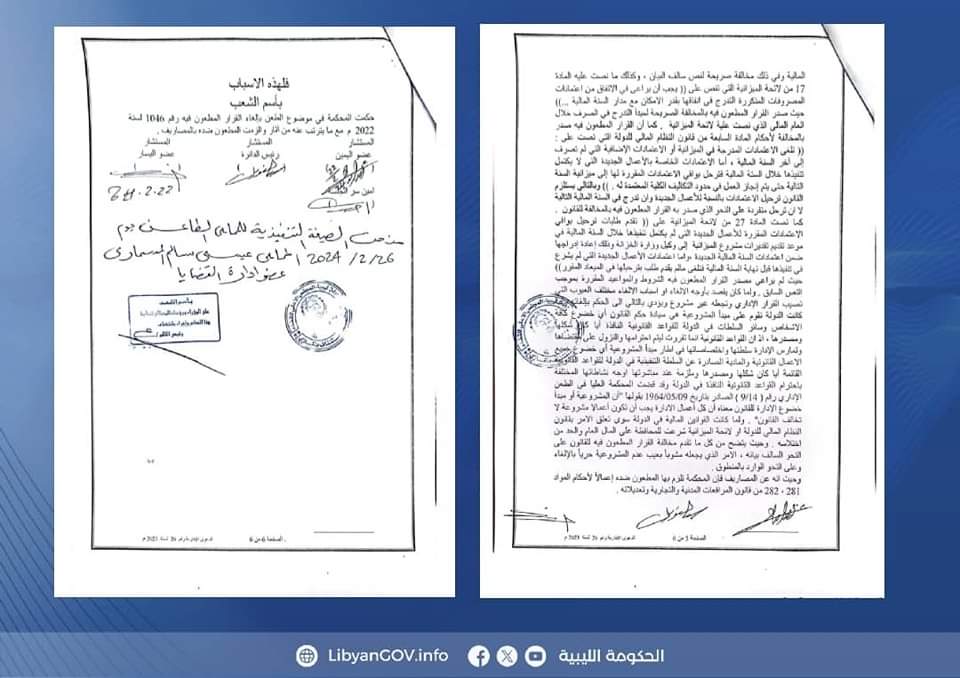 المالية وفي ذلك مخالفة صريحة لنص سالف البيان ، وكذلك ما نصت عليه المادة
17 من لائحة الميزانية التي تنص على (( يجب أن يراعى في الإنفاق من اعتمادات
المصروفات المتكررة التدرج في انفاقها بقدر الامكان مع مدار السنة المالية ...))
حيث صدر القرار المطعون فيه بالمخالفة الصريحة لمبدأ التدرج في الصرف خلال
العام المالي الذي نصت علية لائحة الميزانية . كما أن القرار المطعون فيه صدر
بالمخالفة لأحكام المادة السابعة من قانون النظام المالي للدولة التي نصت على :
(( تلغى الاعتمادات المدرجة في الميزانية أو الاعتمادات الإضافية التي لم تصرف
إلى آخر السنة المالية ، أما الاعتمادات الخاصة بالأعمال الجديدة التي لا يكتمل
تنفيذها خلال السنة المالية فترحل بواقي الاعتمادات المقررة لها إلى ميزانية السنة
التالية حتى يتم إنجاز العمل في حدود التكاليف الكلية المعتمدة له .. )) وبالتالي يستلزم
القانون ترحيل الاعتمادات بالنسبة للأعمال الجديدة وان تدرج في السنة المالية التالية
لا ان ترحل منفردة على النحو الذي صدر به القرار المطعون فيه بالمخالفة للقانون .
كما نصت المادة 27 من لائحة الميزانية على (( تقدم طلبات ترحيل بواقي
الاعتمادات المقررة للأعمال الجديدة التي لم يكتمل تنفيذها خلال السنة المالية في
موعد تقديم تقديرات مشروع الميزانية إلى وكيل وزارة الخزانة وذلك إعادة إدراجها
ضمن اعتمادات السنة المالية الجديدة ،واما اعتمادات الأعمال الجديدة التي لم يشرع
في تنفيذها قبل نهاية السنة المالية فتلغى مالم يقدم طلب بترحيلها في الميعاد المقرر))
حيث لم يراعي مصدر القرار المطعون فيه الشروط والمواعيد المقررة بموجب
النص السابق . ولما كان يقصد بأوجه الالغاء او اسباب الإلغاء مختلف العيوب التي
تصيب القرار الإداري وتجعله غير مشروع ويؤدي بالتالي الى الحكم بإلغائه
كانت الدولة تقوم على مبدأ المشروعية هي سيادة حكم القانون أي خضوع كافة
الاشخاص وسائر السلطات في الدولة للقواعد القانونية النافذة أيا كان شكلها
ومصدرها ، اذ ان القواعد القانونية انما تقررت ليتم احترامها والنزول على مقتضاها
ولتمارس الإدارة سلطتها واختصاصاتها في اطار مبدأ المشروعية أي خضوع جميع
الاعمال القانونية والمادية الصادرة عن السلطة التنفيذية في الدولة للقواعد القانونية
القائمة أيا كان شكلها ومصدرها وملزمة عند مباشرتها اوجه نشاطاتها المختلفة
باحترام القواعد القانونية النافذة في الدولة وقد قضت المحكمة العليا في الطعن
الإداري رقم ( 9/14 ) الصادر بتاريخ 1964/05/09 بقولها "أن المشروعية أو مبدأ
خضوع الإدارة للقانون معناه أن كل أعمال الادارة يجب أن تكون أعمالا مشروعة لا
تخالف القانون" . ولما كانت القوانين المالية في الدولة سوى تعلق الامر بقانون
النظام المالي للدولة او لائحة الميزانية شرعت للمحافظة على المال العام والحد من
اختلاسه . وحيث يتضح من كل ما تقدم مخالفة القرار المطعون فيه للقانون على
النحو السالف بيانه ، الامر الذي يجعله مشوباً بعيب عدم المشروعية حرياً بالإلغاء
وعلى النحو الوارد بالمنطوق .
وحيث انه عن المصاريف فإن المحكمة تلزم بها المطعون ضده إعمالاً لأحكام المواد
281 ، 282 من قانون المرافعات المدنية والتجارية وتعديلاته .
الصفحة 5 من 6
الدعوى الإدارية رقم 26 لسنة 2023 م
فلهذه الاسباب
بأسم الشعب
حكمت المحكمة في موضوع الطعن بإلغاء القرار المطعون فيه رقم 1046 لسنة
2022 م مع ما يترتب عنه من آثار والزمت المطعون ضده بالمصاريف .
المستشار المستشار المستشار
عضو اليمين رئيس الدائرة عضو اليسار
امين سر
منحت الصيغة التنفيذية للمحامي الطاعن يوم
2024/2/26 المحامي عيسى سالم المسماري
عضو إدارة القضايا
بأسم الشعب
الصفحة 6 من 6
الدعوى الإدارية رقم 26 لسنة 2023 م
LibyanGOV.info
الحكومة الليبية